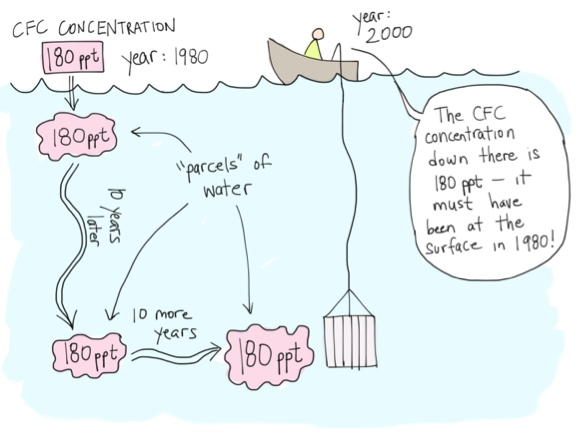 CFC CONCENTRATION
180 ppt
year: 1980
year:
2000
180 ppt
"parcels" of
water
10 years
later
The CFC
concentration
down there is
180 ppt – it
must have
been at the
surface in 1980!
10 more
years
180 ppt
180 ppt